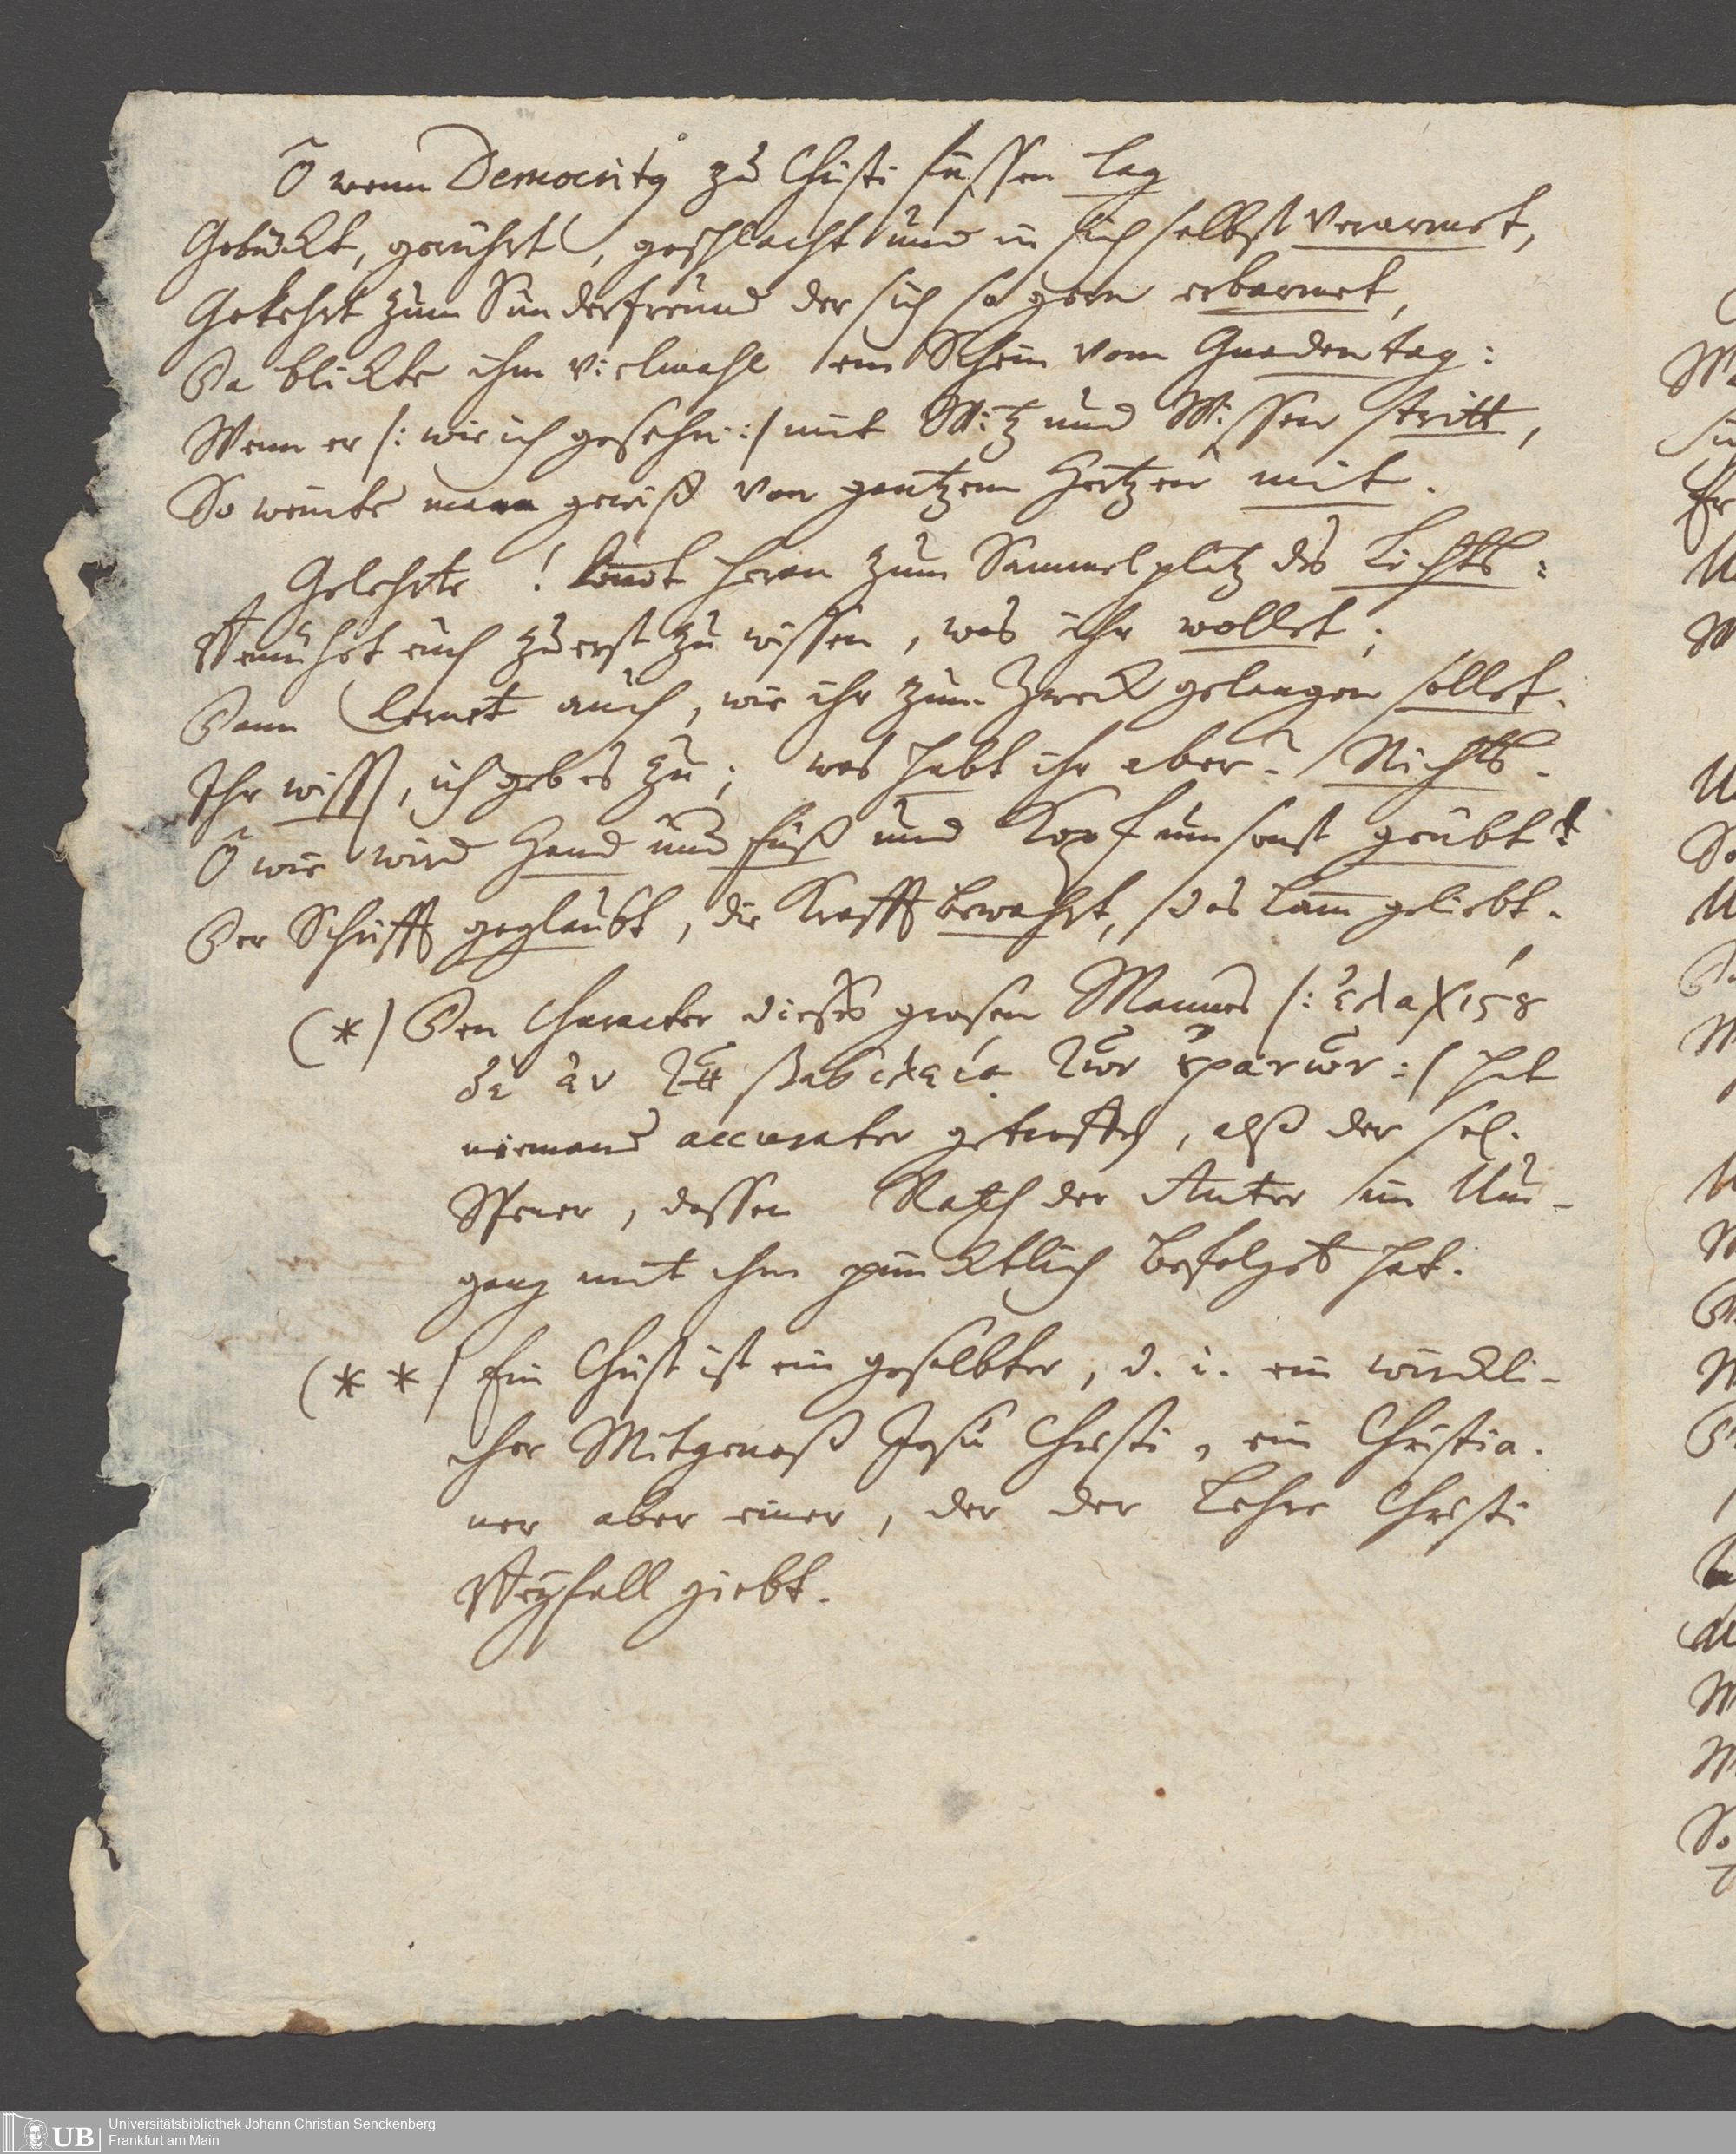 O wenn Democritus zu Christi füssen lag
Gebückt, gerührt, geschlacht und in sich selbst verarmet,
Gekehrt zum Sünderfreund der sich so gern erbarmet,
Da blickte ihm vielmahl ein Schein vom Gnadentag:
Wenn er /: wie ich gesehn :/ mit Witz und Wissen stritt,
So weinte mann gewiß von gantzem Hertzen mit.
Gelehrte! komt heran zum Sammelplatz des Lichts:
Bemühet euch zu erst zu wissen, was ihr wollet;
Dann lernet auch, wie ihr zum Zweck gelangen sollet.
Ihr wisst, ich geb es zu; was habt ihr aber? Nichts.
O wie wird Hand und Fuß und Kopf umsonst geübt!
Der Schrifft geglaubt, die Krafft bewahrt, das Lamm geliebt.
(*) Den Character dieses grosen Mannes /: ἐλαχίςȣ
δὲ ἐν τῇ βασιλείᾳ τῶν ȣ̓ρανῶν :/ hat
niemand accurater getroffen, alß der sel.
Spener, dessen Rath der Autor im Um-
gang mit ihm pünctlich befolget hat.
(**) Ein Christ ist ein gesalbter, d. i. ein wirckli-
cher Mitgenoß Jesu Christi, ein Christia-
ner aber einer, der der Lehre Christi
Beyfall giebt.
UB
Universitätsbibliothek Johann Christian Senckenberg
Frankfurt am Main